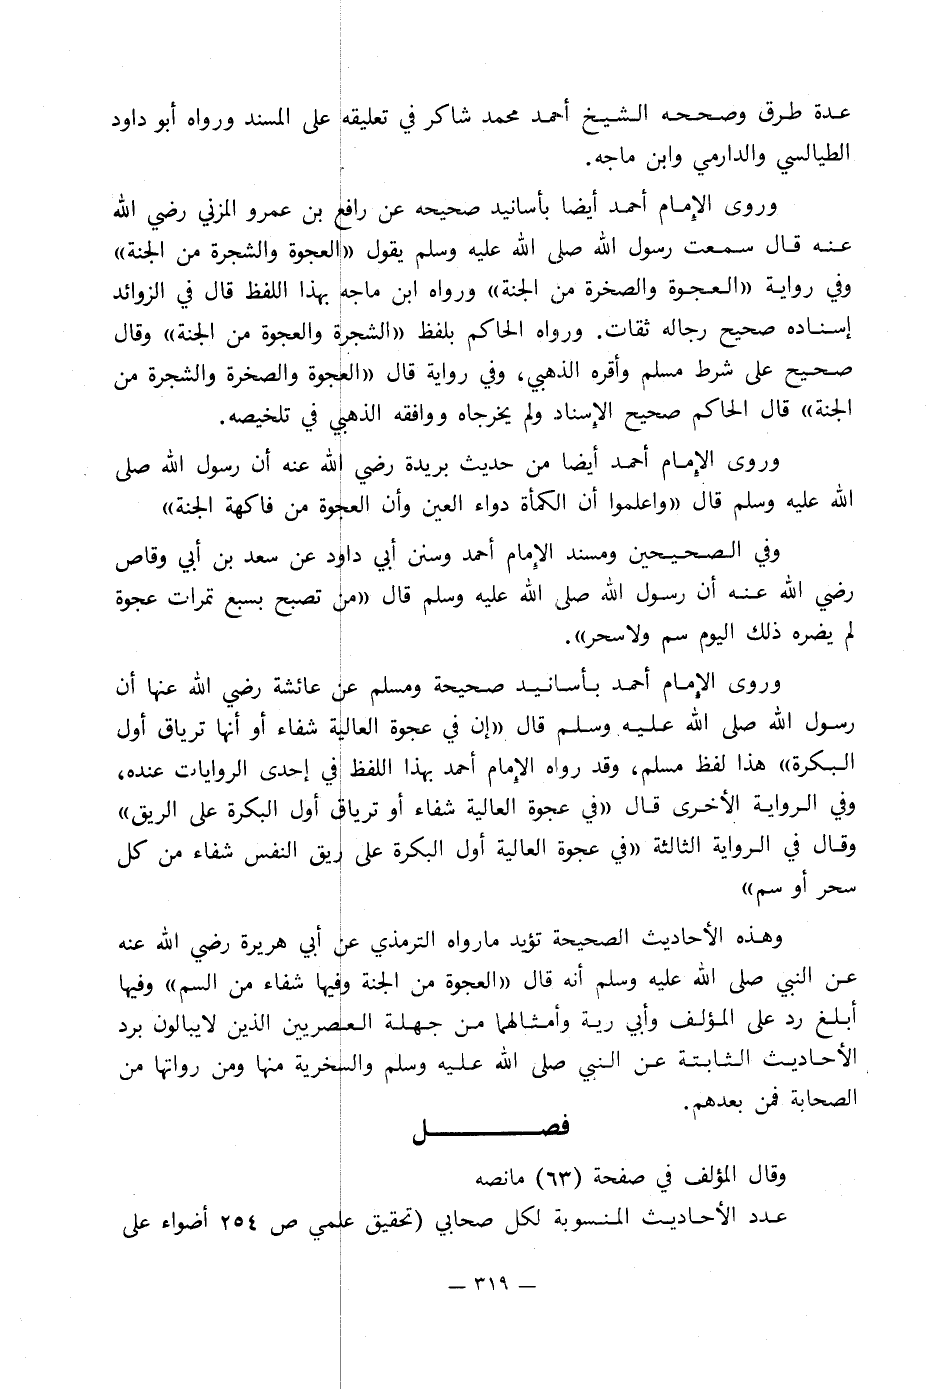 عدة طرق وصححه الشيخ أحمد محمد شاكر في تعليقه على المسند ورواه أبو داود
الطيالسي والدارمي وابن ماجه.
وروى الإمام أحمد أيضا بأسانيد صحيحه عن رافع بن عمرو المزني رضي الله
عنه قال سمعت رسول الله صلى الله عليه وسلم يقول «العجوة والشجرة من الجنة»
وفي رواية «العجوة والصخرة من الجنة» ورواه ابن ماجه بهذا اللفظ قال في الزوائد
إسناده صحيح رجاله ثقات. ورواه الحاكم بلفظ «الشجرة والعجوة من الجنة» وقال
صحيح على شرط مسلم وأقره الذهبي، وفي رواية قال «العجوة والصخرة والشجرة من
الجنة» قال الحاكم صحيح الإسناد ولم يخرجاه ووافقه الذهبي في تلخيصه.
وروى الإمام أحمد أيضا من حديث بريدة رضي الله عنه أن رسول الله صلى
الله عليه وسلم قال «واعلموا أن الكمأة دواء العين وأن العجوة من فاكهة الجنة»
وفي الصحيحين ومسند الإمام أحمد وسنن أبي داود عن سعد بن أبي وقاص
رضي الله عنه أن رسول الله صلى الله عليه وسلم قال «من تصبح بسبع تمرات عجوة
لم يضره ذلك اليوم سم ولاسحر».
وروى الإمام أحمد بأسانيد صحيحة ومسلم عن عائشة رضي الله عنها أن
رسول الله صلى الله عليه وسلم قال «إن في عجوة العالية شفاء أو أنها ترياق أول
البكرة» هذا لفظ مسلم، وقد رواه الإمام أحمد بهذا اللفظ في إحدى الروايات عنده،
وفي الرواية الأخرى قال «في عجوة العالية شفاء أو ترياق أول البكرة على الريق»
وقال في الرواية الثالثة «في عجوة العالية أول البكرة على ريق النفس شفاء من كل
سحر أو سم»
وهذه الأحاديث الصحيحة تؤيد مارواه الترمذي عن أبي هريرة رضي الله عنه
عن النبي صلى الله عليه وسلم أنه قال «العجوة من الجنة وفيها شفاء من السم» وفيها
أبلغ رد على المؤلف وأبي رية وأمثالهما من جهلة العصريين الذين لايبالون برد
الأحاديث الثابتة عن النبي صلى الله عليه وسلم والسخرية منها ومن رواتها من
الصحابة فمن بعدهم.
فصل
وقال المؤلف في صفحة (٦٣) مانصه
عدد الأحاديث المنسوبة لكل صحابي (تحقيق علمي ص ٢٥٤ أضواء على
— ٣١٩ —